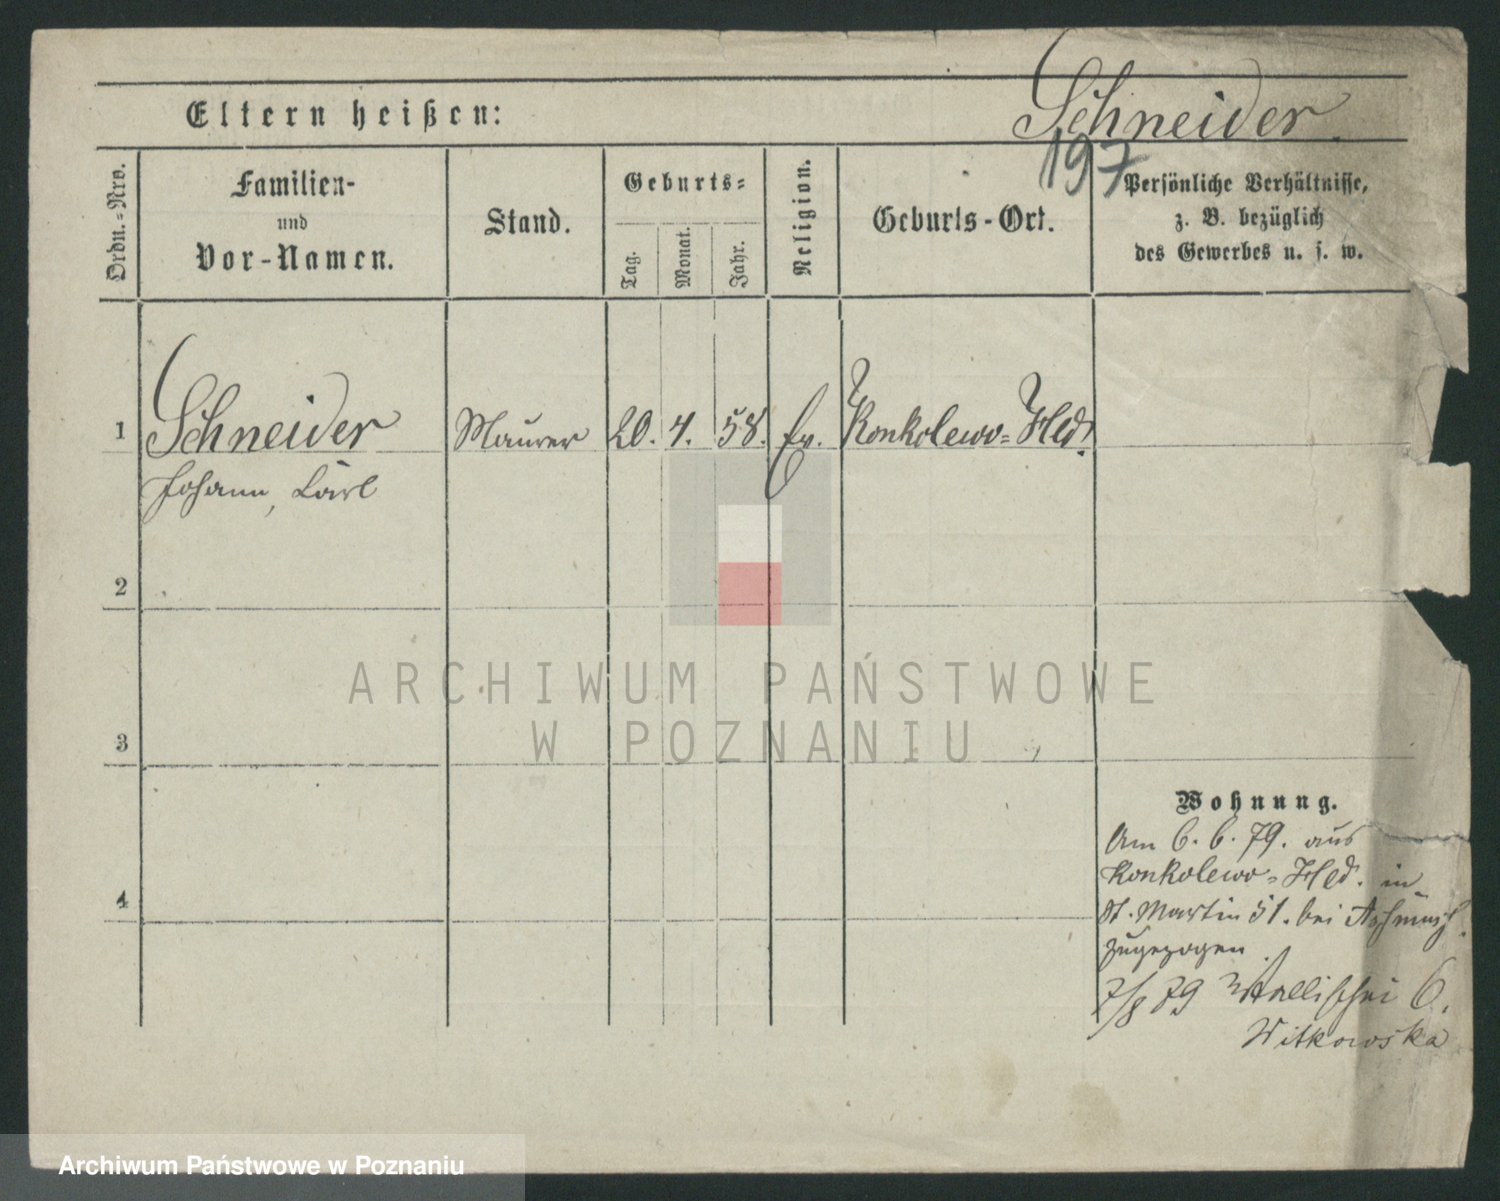 Schneider.
Eltern heißen:
197
Ordn.-Nro.
Familien-
und
Vor-Namen.
Stand.
Geburts-
Tag.
Monat.
Jahr.
Religion.
Geburts-Ort.
Persönliche Verhältnisse,
z. B. bezüglich
des Gewerbes u. s. w.
1
Schneider
Johann, Carl
Maurer
20. 4. 58.
Ev.
Konkolewo-Hld.
2
3
4
Wohnung.
Am 6. 6. 79. aus
Konkolewo-Hld. in
St. Martin 51. bei
zugezogen.
7/8 79 Wallischei 6.
Witkowska
ARCHIWUM PAŃSTWOWE
W POZNANIU
Archiwum Państwowe w Poznaniu